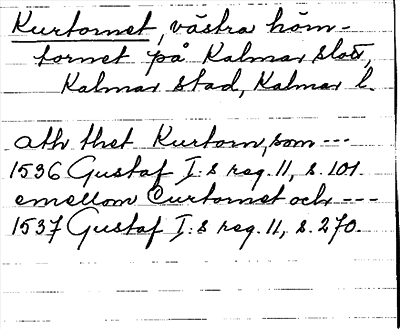 Kurtornet, västra hörn-
tornet på Kalmar slott,
Kalmar stad, Kalmar l.
ath thet Kurtorn, som ---
1536 Gustaf I:s reg. 11, s. 101.
emellom Curtornet och ---
1537 Gustaf I:s reg. 11, s. 270.